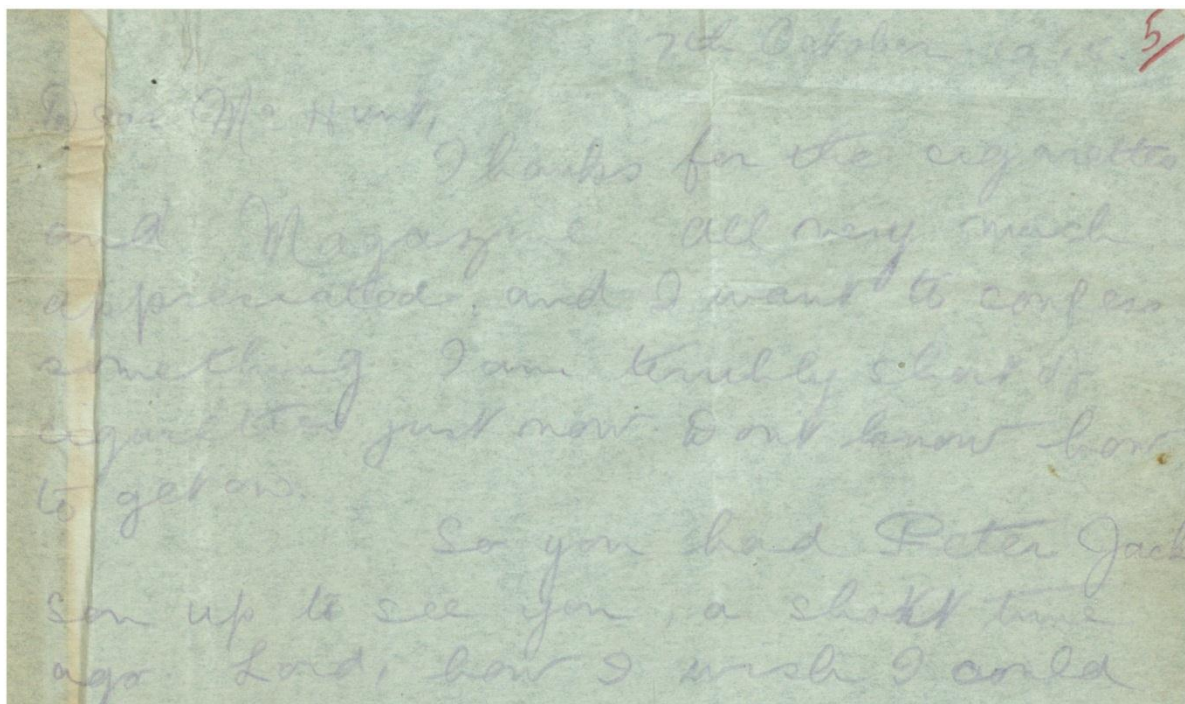 7th October 1915. 5/
Dear Mr Hunt,
Thanks for the cigarettes
and Magazine all very much
appreciated, and I want to confess
something I am terribly short of
cigarettes just now. Dont know how
to get on.
So you had Peter Jack
son up to see you, a short time
ago. Lord, how I wish I could